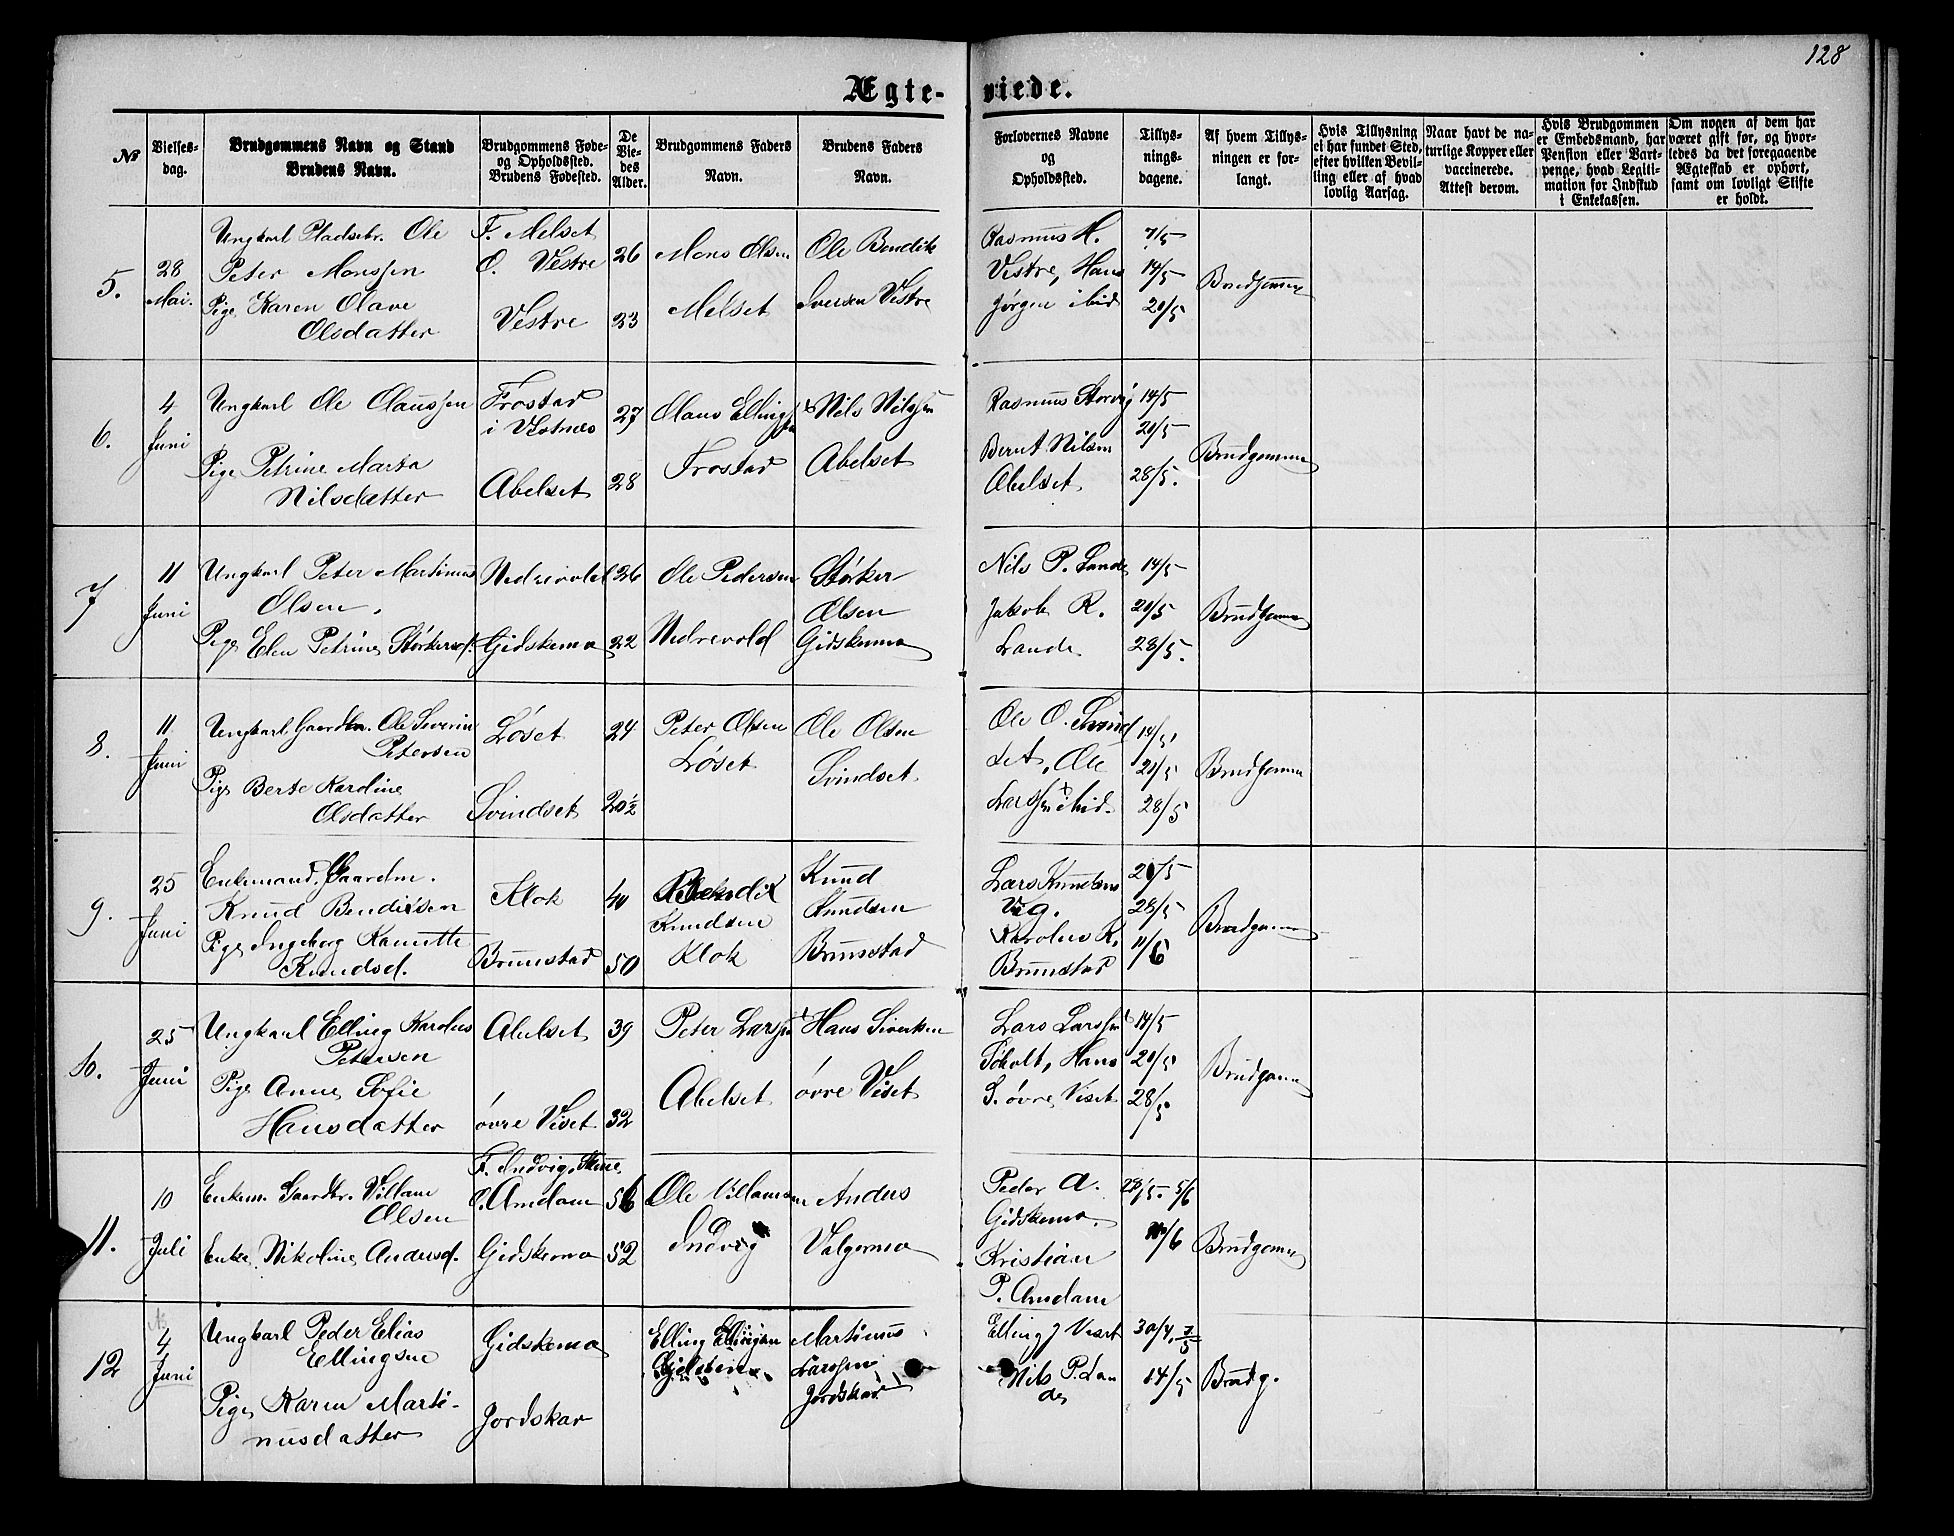 128
Ægte-
viede.
№
Vielses-
dag.
Brudgommens Navn og Stand
Brudens Navn.
Brudgommens Føde-
og Opholdssted.
Brudens Fødested.
De
Vie-
des
Alder.
Brudgommens Faders
Navn.
Brudens Faders
Navn.
Forlovernes Navne
og
Opholdssted.
Tillys-
nings-
dagene.
Af hvem Tillys-
ningen er for-
langt.
Hvis Tillysning
ei har fundet Sted,
efter hvilken Bevil-
ling eller af hvad
lovlig Aarsag.
Naar havt de na-
turlige Kopper eller
vaccinerede.
Attest derom.
Hvis Brudgommen
er Embedsmand, har
Pension eller Vart-
penge, hvad Legiti-
mation for Indskud
i Enkekassen.
Om nogen af dem har
været gift før, og hvor-
ledes da det foregaaende
Ægteskab er ophørt,
samt om lovligt Skifte
er holdt.
5.
28
Mai.
Ungkarl Pladsbr. Ole
Peter Monssen
Pige Karen Olave
Olsdatter
F. Melset
O. Vestre
Vestre
26
23
Mons Olsen
Melset
Ole Bendik
Iversen Vestre
Rasmus H.
Vestre, Hans
Jørgen ibid
7/5
14/5
20/5
Brudgommen
6.
4
Juni
Ungkarl Ole Claussen
Pige Petrine Marta
Nilsdatter
Frostad
i Vestnes
Abelset
27
28
Claus Ellingsen
Frostad
Nils Nilssen
Abelset
Rasmus Storvig
Bernt Nilsen
Abelset
14/5
20/5
28/5.
Brudgommen
7
11
Juni
Ungkarl Peter Martinus
Olsen.
Pige Elen Petrine Størkersd.
Nedrevold
Gidskemo
26
22
Ole Pedersen
Nedrevold
Størker
Olsen
Gidskemo
Nils P. Lande
Jakob R.
Lande
14/5
20/5
28/5.
Brudgommen
8.
11
Juni
Ungkarl Gaardbr. Ole Severin
Petersen
Pige Berte Karoline
Olsdatter
Løset
Svindset
24
20½
Peter Olsen
Løset
Ole Olsen
Svindset
Ole O. Svind
set, Ole
Larssen ibid.
14/5,
20/5
28/5
Brudgommen
9.
25
Juni
Enkemand, Gaardm.
Knud Bendiksen
Pige Ingeborg Kanutte
Knudsd.
Klok
Brunstad
40
50
Bendik
Knudsen
Klok
Knud
Knudsen
Brunstad
Lars Knudsen
Vig.
Karolus K.
Brunstad
20/5
28/5
11/6
Brudgommen
10.
25
Juni
Ungkarl Elling Karolus
Petersen
Pige Anne Sofie
Hansdatter
Abelset
øvre Viset
39
32
Peter Larssen
Abelset
Hans Siversen
øvre Viset
Lars Larssen
Scholt, Hans
S. øvre Viset
14/5
20/5
28/5
Brudgommen
11.
10
Juli
Enkem. Gaardbr. Villam
Olsen
Enke Nikoline Andersd.
F. Indvig, Skeue
O. Amdam
Gidskemo
56
52
Ole Villamsen
Indvig
Anders
Valgermo
Peder A.
Gidskemo.
Kristian
P. Amdam
28/5. 5/6
11/6
Brudgommen
12
4
Juni
Ungkarl Peder Elias
Ellingsen
Pige Karen Marti-
nusdatter
Gidskemo
Jordskar
Elling Ellingsen
Gjelsten
Martinus
Larssen
Jordskar
Elling J Viset
Nils P. Lan
de
30/4, 7/5
14/5
Brudg.